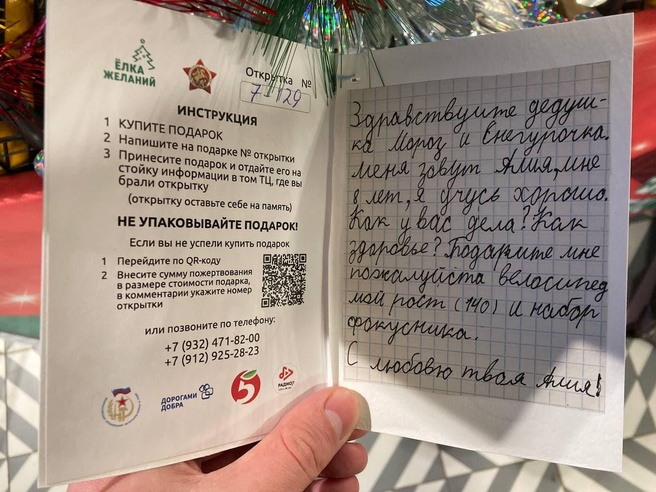 ЁЛКА
ЖЕЛАНИЙ
Открытка №
7-129
ИНСТРУКЦИЯ
1 КУПИТЕ ПОДАРОК
2 Напишите на подарке № открытки
3 Принесите подарок и отдайте его на
стойку информации в том ТЦ, где вы
брали открытку
(открытку оставьте себе на память)
НЕ УПАКОВЫВАЙТЕ ПОДАРОК!
Если вы не успели купить подарок
1 Перейдите по QR-коду
2 Внесите сумму пожертвования
в размере стоимости подарка,
в комментарии укажите номер
открытки
или позвоните по телефону:
+7 (932) 471-82-00
+7 (912) 925-28-23
ДОРОГАМИ
ДОБРА
5
Здравствуйте дедуш-
ка Мороз и Снегурочка.
Меня зовут Алия, мне
8 лет, я учусь хорошо.
Как у вас дела? Как
здоровье? Подарите мне
пожалуйста велосипед
мой рост (140) и набор
фокусника.
С любовю твоя Алия!